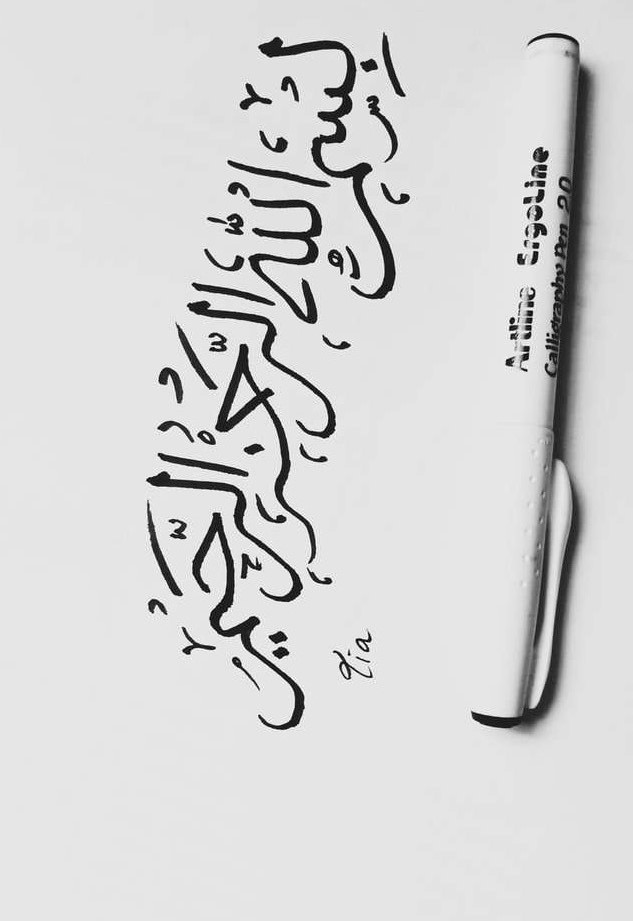 بسم الله الرحمن الرحيم
Qia
Artline ErgoLine
Calligraphy Pen 2.0